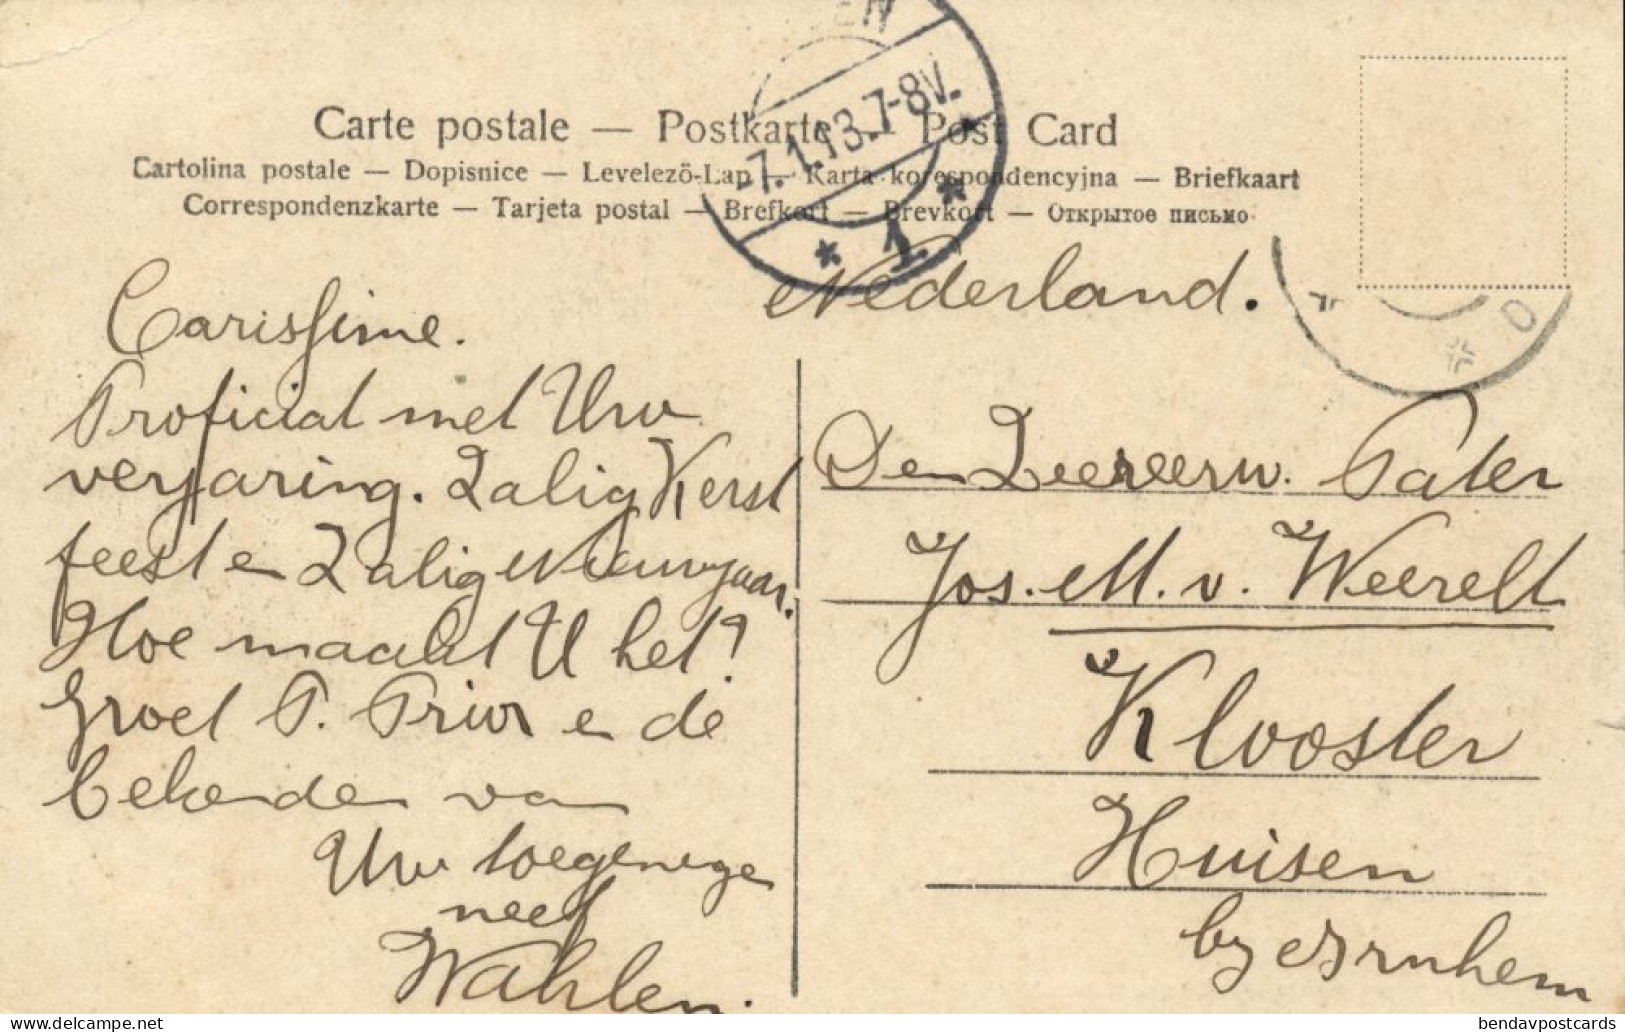 EN
-7.1.13.7-8V.
* 1. *
Carte postale — Postkarte — Post Card
Cartolina postale — Dopisnice — Levelezö-Lap — Karta korespondencyjna — Briefkaart
Correspondenzkarte — Tarjeta postal — Brefkort — Brevkort — Открытое письмо
Nederland.
Carissime.
Proficiat met Uw
verjaring. Zalig Kerst
feest en Zalig Nieuwjaar.
Hoe maakt U het?
Groet P. Prior en de
bekenden van
Uw toegenege
neef
Wahlen.
Den Zeereerw. Pater
Jos. M. v. Weerelt
Klooster
Huisen
by Arnhem
delcampe.net
bendavpostcards